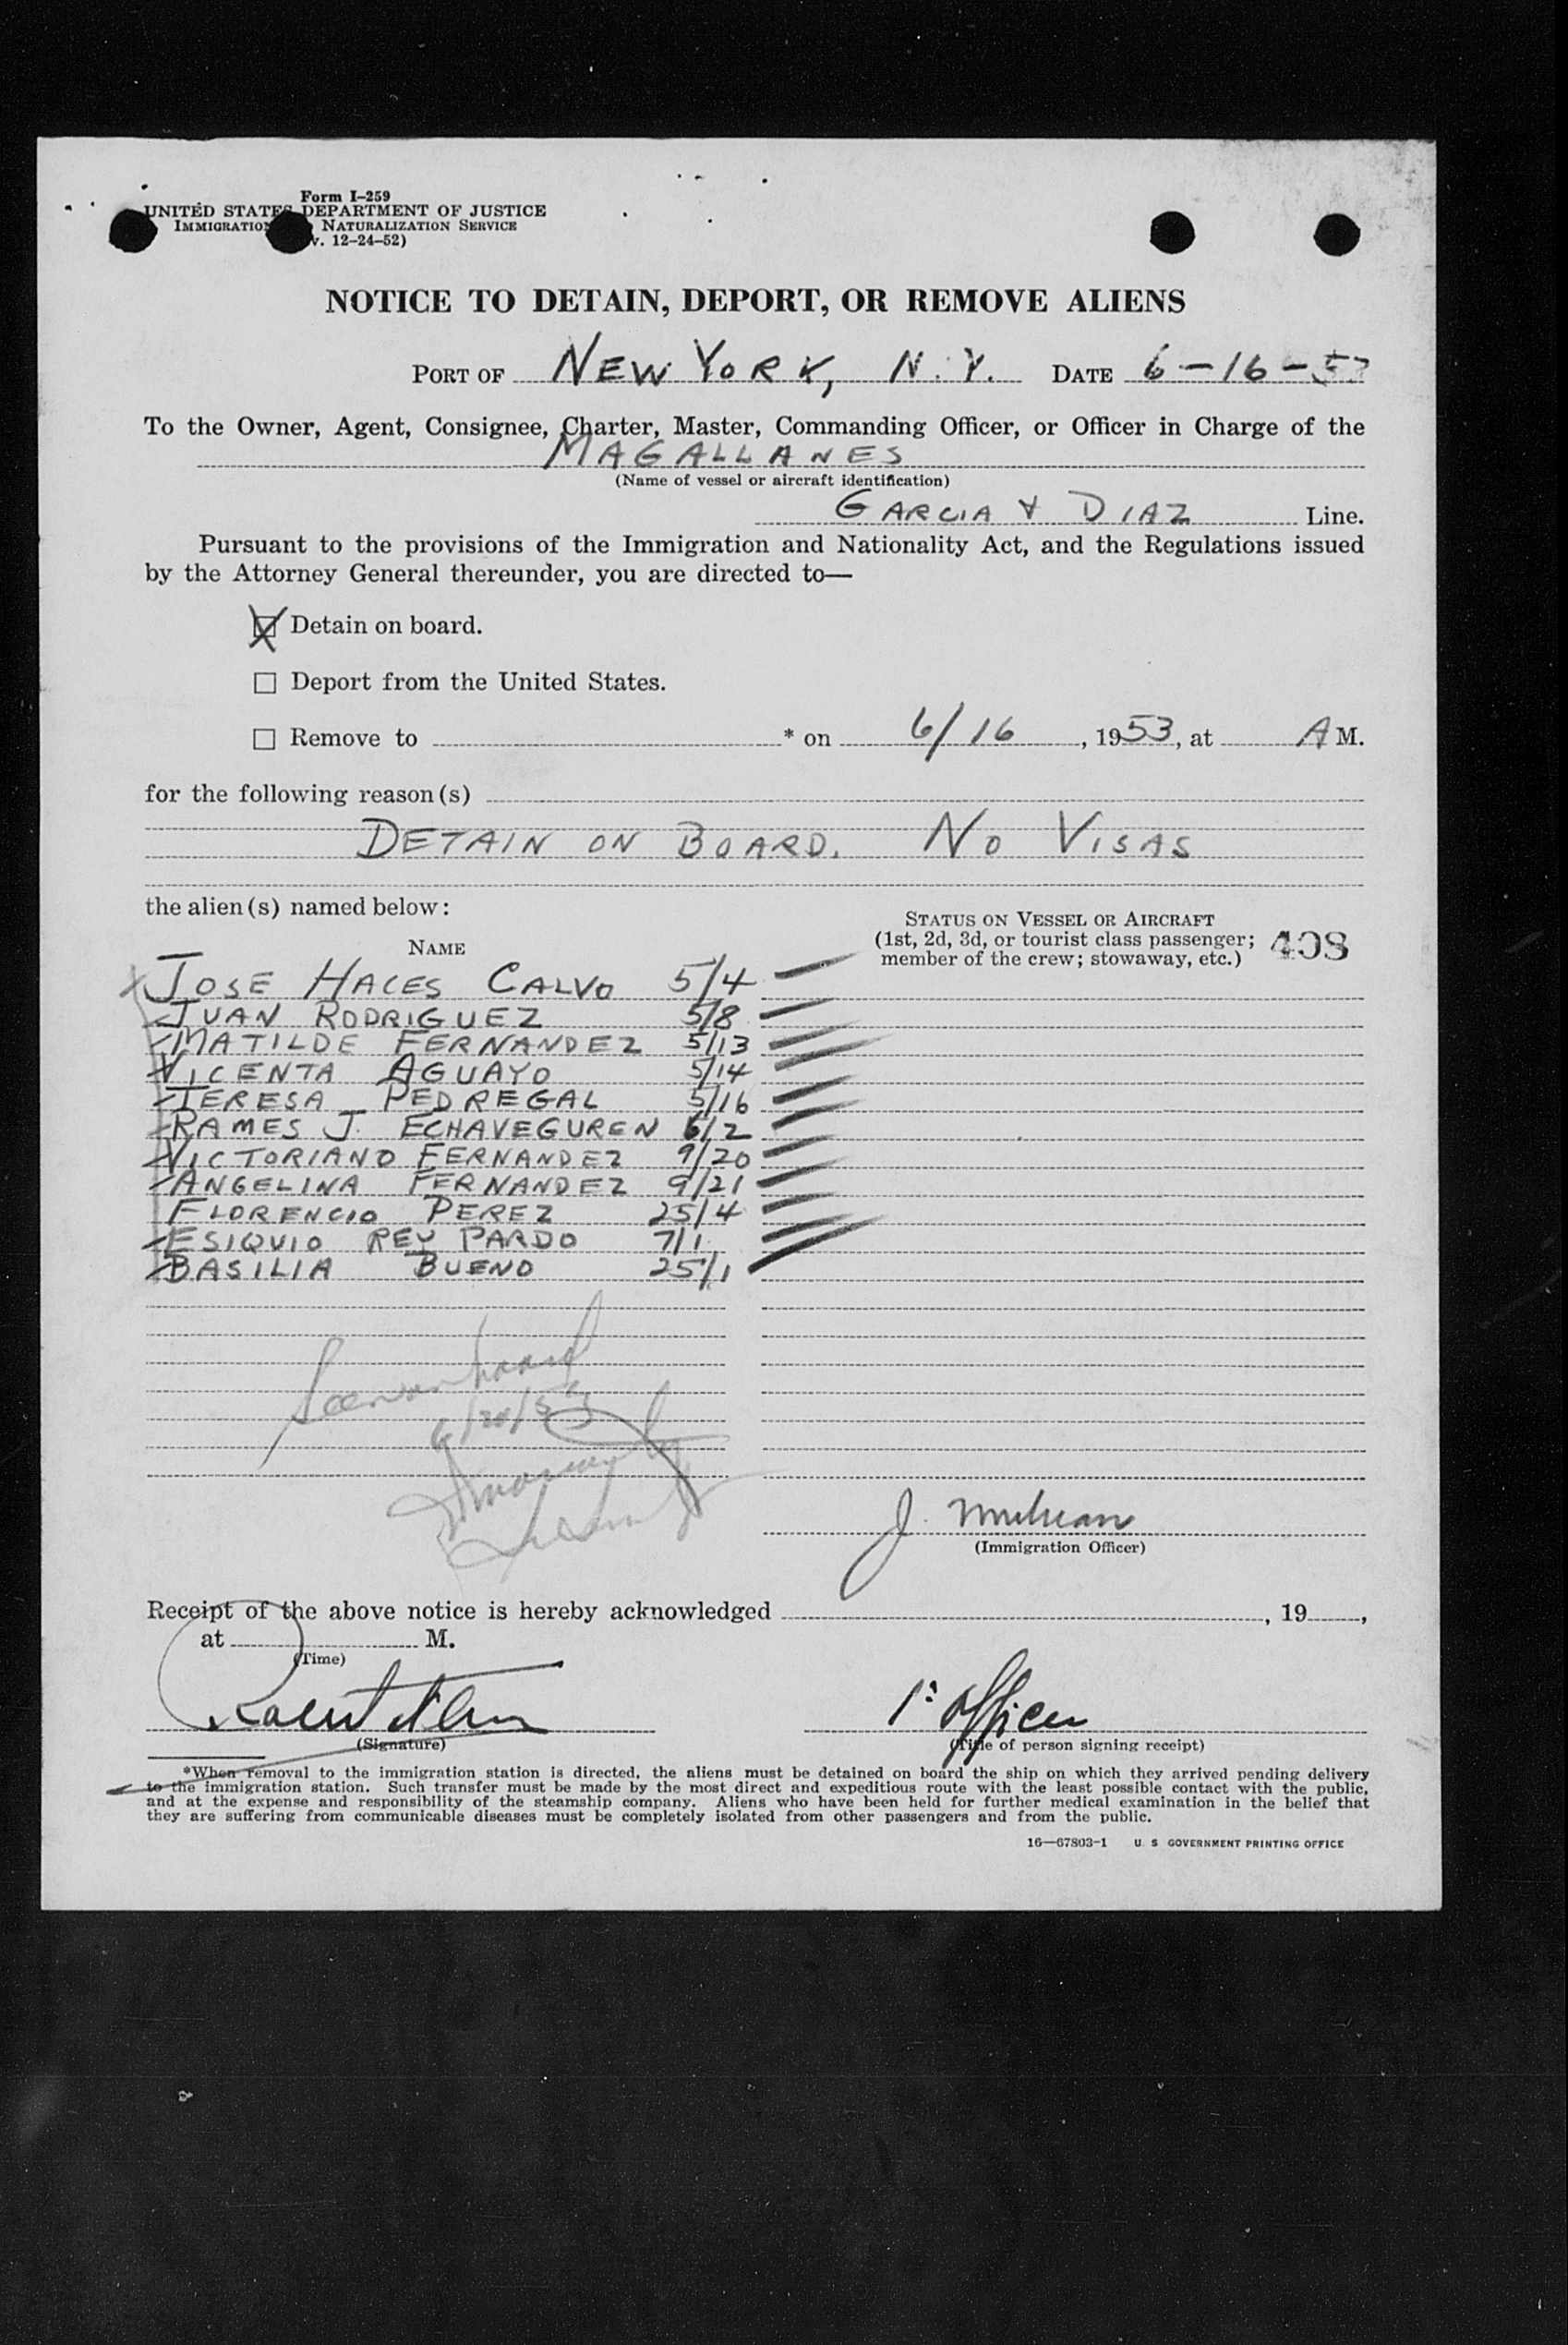 Form I-259
UNITED STATES DEPARTMENT OF JUSTICE
IMMIGRATION NATURALIZATION SERVICE
v. 12-24-52)
NOTICE TO DETAIN, DEPORT, OR REMOVE ALIENS
PORT OF NEW YORK, N.Y. DATE 6-16-53
To the Owner, Agent, Consignee, Charter, Master, Commanding Officer, or Officer in Charge of the
MAGALLANES
(Name of vessel or aircraft identification)
GARCIA & DIAZ Line.
Pursuant to the provisions of the Immigration and Nationality Act, and the Regulations issued
by the Attorney General thereunder, you are directed to—
Detain on board.
Deport from the United States.
Remove to * on 6/16, 1953, at A M.
for the following reason(s)
DETAIN ON BOARD. NO VISAS
the alien(s) named below:
STATUS ON VESSEL OR AIRCRAFT
(1st, 2d, 3d, or tourist class passenger;
member of the crew; stowaway, etc.)
408
NAME
JOSE HACES CALVO 5/4
JUAN RODRIGUEZ 5/8
MATILDE FERNANDEZ 5/13
VICENTA AGUAYO 5/14
TERESA PEDREGAL 5/16
RAMES J. ECHAVEGUREN 6/2
VICTORIANO FERNANDEZ 9/20
ANGELINA FERNANDEZ 9/21
FLORENCIO PEREZ 25/4
ESIQUIO REY PARDO 7/1
BASILIA BUENO 25/1
6/20/53
J.
(Immigration Officer)
Receipt of the above notice is hereby acknowledged , 19 ,
at M.
(Time)
1º Officer
(Signature)
(Title of person signing receipt)
*When removal to the immigration station is directed, the aliens must be detained on board the ship on which they arrived pending delivery
to the immigration station. Such transfer must be made by the most direct and expeditious route with the least possible contact with the public,
and at the expense and responsibility of the steamship company. Aliens who have been held for further medical examination in the belief that
they are suffering from communicable diseases must be completely isolated from other passengers and from the public.
16—67803-1 U. S GOVERNMENT PRINTING OFFICE